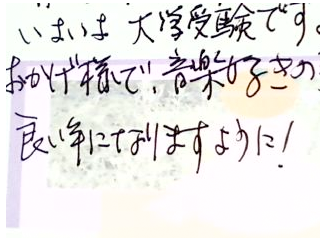 いよいよ大学受験です。
おかげ様で、音楽好きの
良い年になりますように!